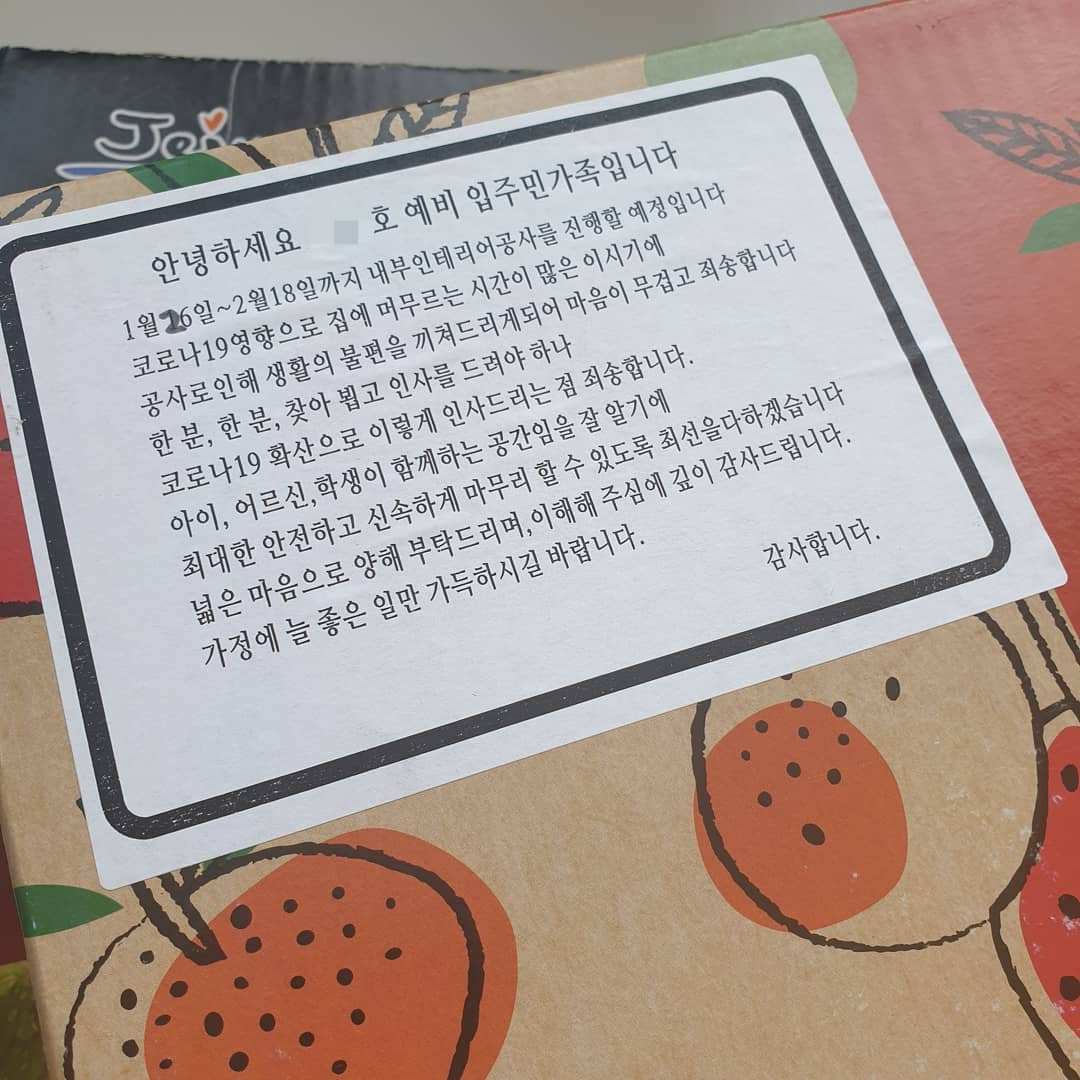 Jeju
안녕하세요 호 예비 입주민가족입니다
1월26일~2월18일까지 내부인테리어공사를 진행할 예정입니다
코로나19영향으로 집에 머무르는 시간이 많은 이시기에
공사로인해 생활의 불편을 끼쳐드리게되어 마음이 무겁고 죄송합니다
한 분, 한 분, 찾아 뵙고 인사를 드려야 하나
코로나19 확산으로 이렇게 인사드리는 점 죄송합니다.
아이, 어르신,학생이 함께하는 공간임을 잘 알기에
최대한 안전하고 신속하게 마무리 할 수 있도록 최선을다하겠습니다
넓은 마음으로 양해 부탁드리며,이해해 주심에 깊이 감사드립니다.
가정에 늘 좋은 일만 가득하시길 바랍니다.
감사합니다.